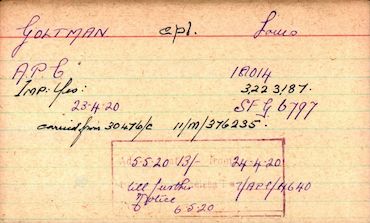 GOLTMAN Cpl. Louis
A.P.C 18014
Imp: Yes: 3223187.
23.4.20 SFG 6797
carried from 30476/C 11/M/376235.
5.5.20 13/- 24.4.20
till further
Notice
6.5.20